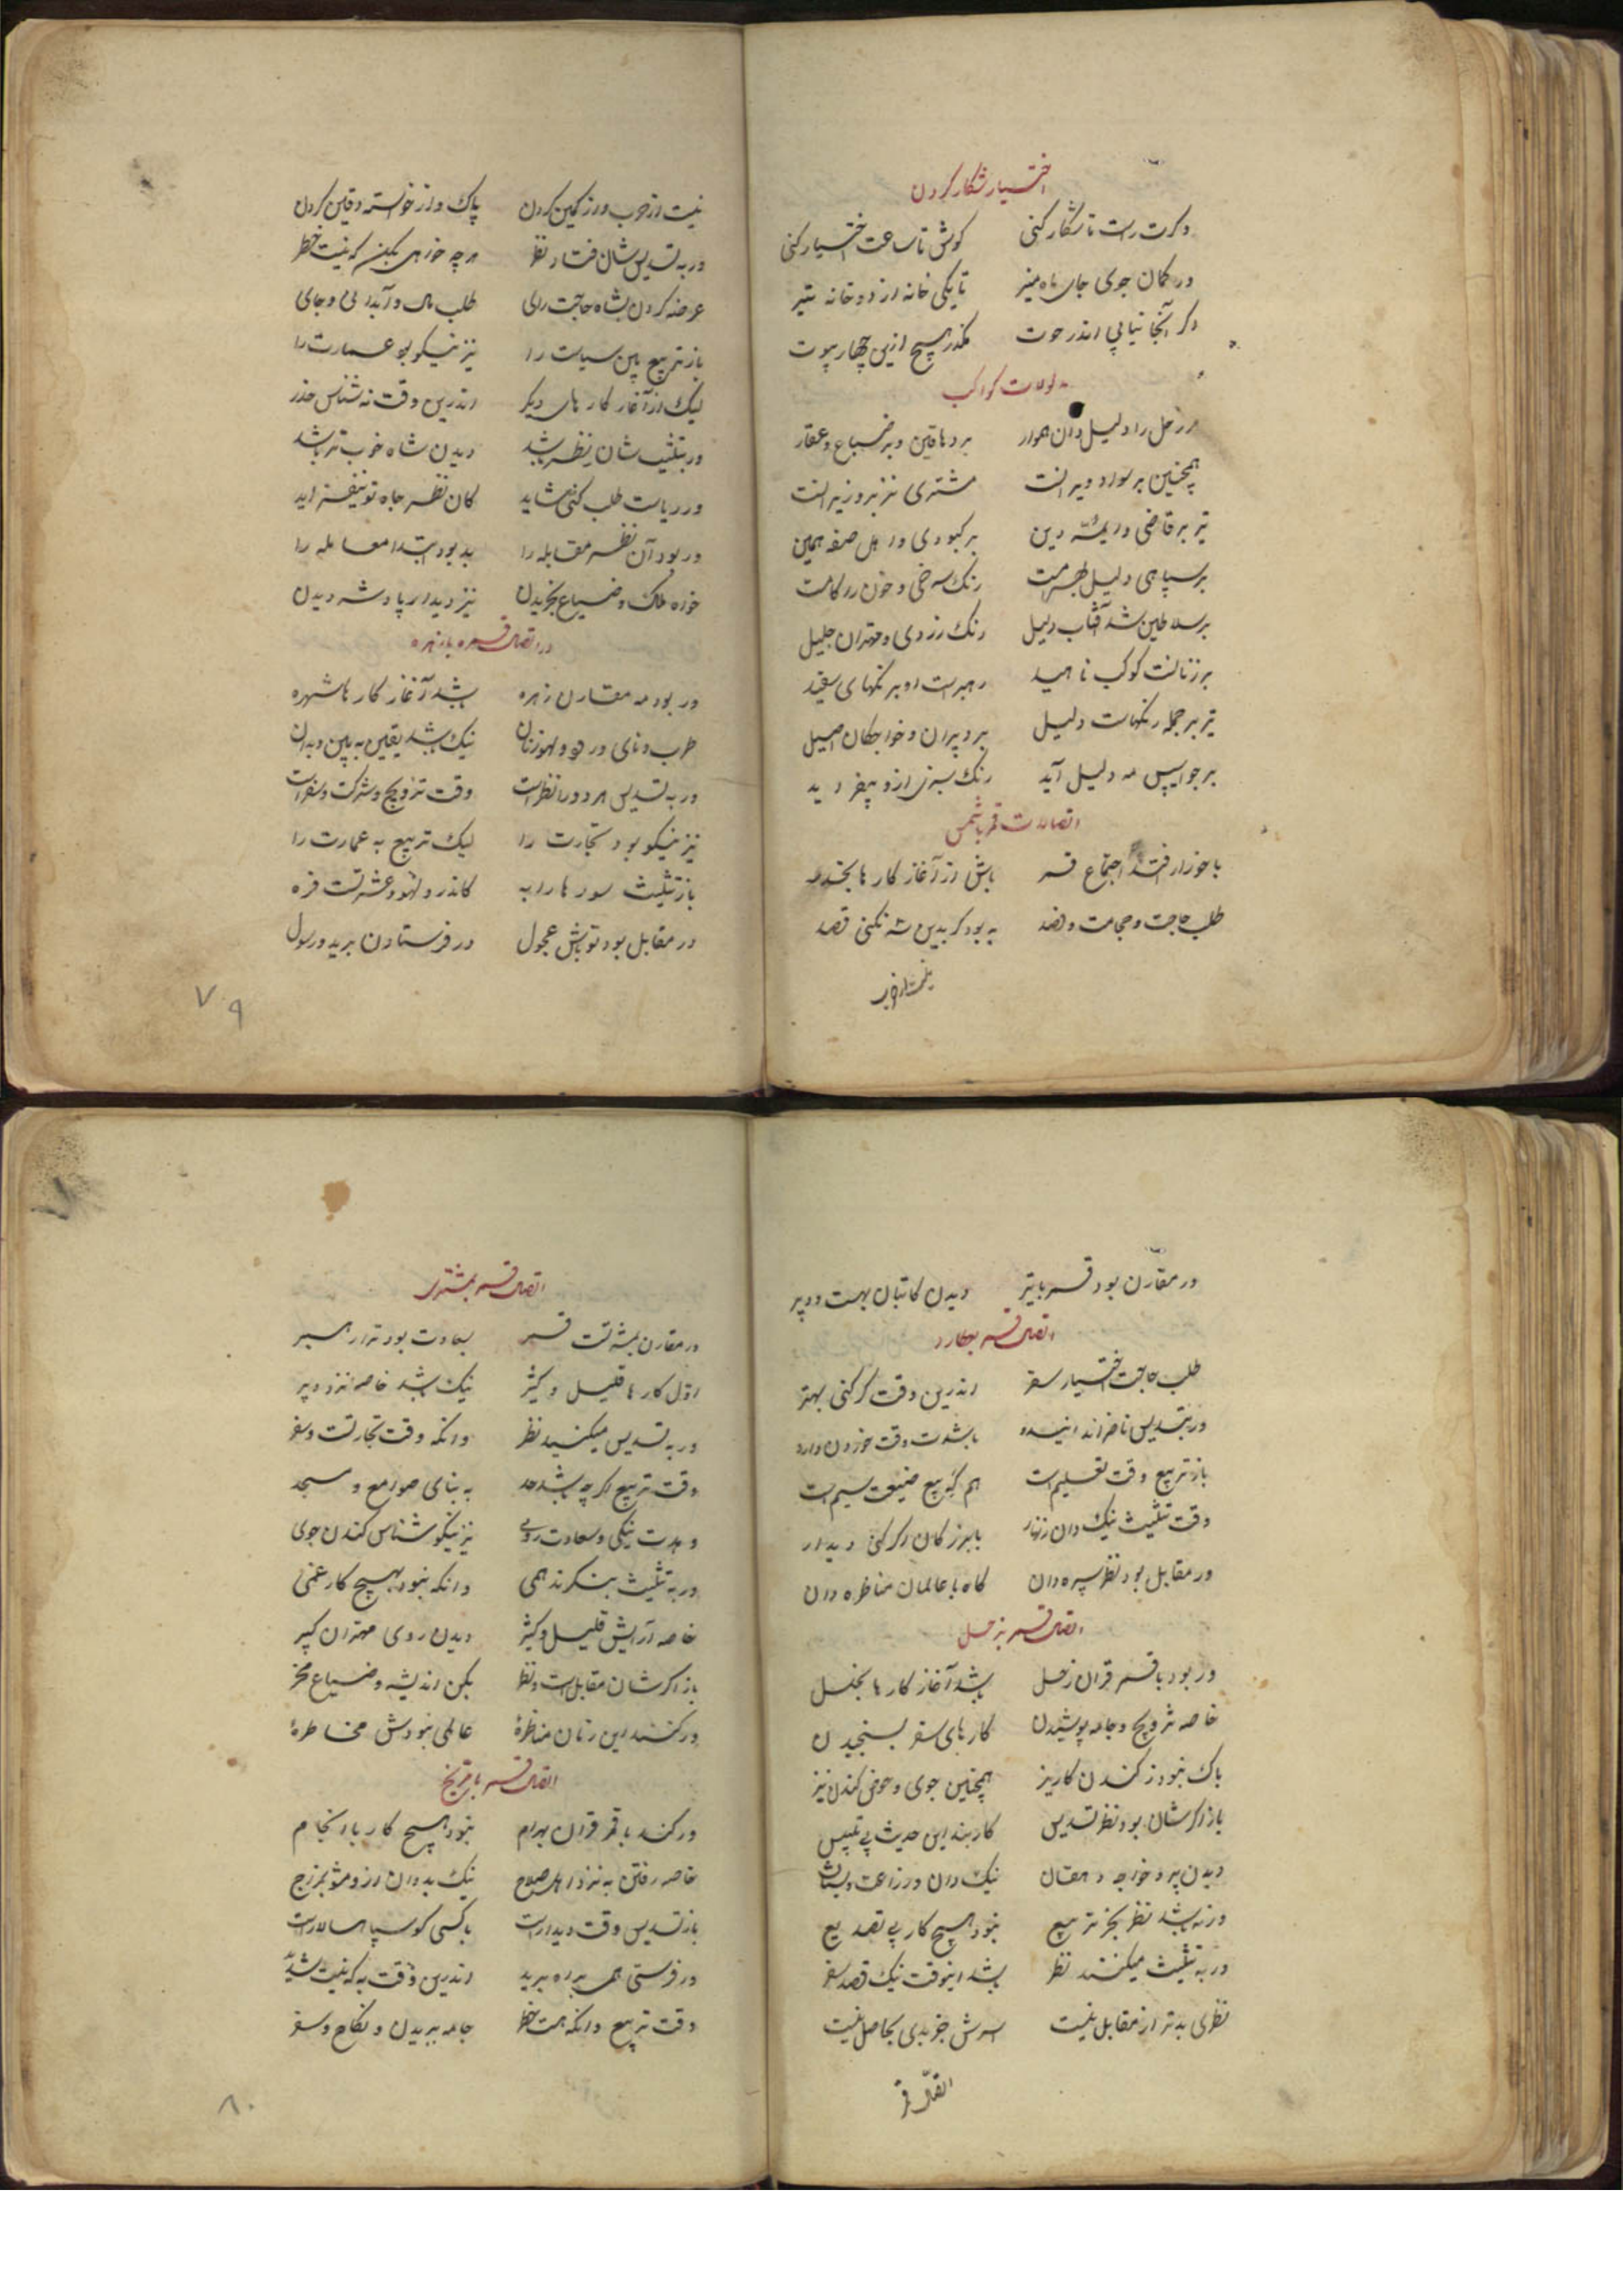 اختیار شکار کردن
وگرت رای است تا شکار کنی کوش تا ساعت اختیار کنی
در کمان جوی جای ماه منیر تا یکی خانه از دو خانه تیر
وگر آنجا نیابی اندر حوت مگذر هیچ ازین چهار بیوت
مدلولات کواکب
مر زحل را دلیل دان هموار بر دهاقین و بر ضیاع و عقار
همچنین بر سواد ویرانست مشتری نیز بر وزیرانست
نیز بر قاضی و ایمّه دین بر کبودی و اهل صفه همین
بر سپاهی دلیل بهرامست رنگ سرخی و خون
بر سلاطین شد آفتاب دلیل رنگ زردی و مهتران جلیل
بر زنانست کوکب ناهید رهبرست او بر رنگهای سفید
تیر بر جمله رنگهاست دلیل بر دبیران و خواجگان اصیل
بر جواسیس مه دلیل آید رنگ سبزی ازو بیفزاید
اتصالات قمر با شمس
با خور ار افتد اجتماع قمر باش از آغاز کارها بحذر
طلب حاجت و حجامت و فصد به بود گر بدین شه نکنی قصد
نیست از خوب
نیست از خوب ورز کمین کردن پاک و از خواسته دفین کردن
ور به تسدیس شان فتاد نظر هر چه خواهی بکن که نیست خطر
عرضه کردن بشاه حاجت رای طلب مال و آبدانی و جای
باز تربیع بین سیاست را نیز نیکو بود عمارت را
لیک از آغاز کارهای دیگر اندرین وقت نه شناس حذر
ور بتثلیث شان نظر باشد دیدن شاه خوب تر باشد
ور ریاست طلب کنی شاید کان نظر جاه تو بیفزاید
ور بود آن نظر مقابله را بد بود ابتدا معامله را
خوره ملک و ضیاع بخریدن نیز دیدار پادشه دیدن
در اتصال قمر با زهره
ور بود مه مقارن زهره باشد آغاز کارها شهره
طرب و نای و رود و لهو زنان نیک باشد یقین به بین و بدان
ور به تسدیس هر دو را نظر است وقت تزویج و شرکت و سفر است
نیز نیکو بود تجارت را لیک تربیع به عمارت را
باز تثلیث سورها را به کاندر و لهو و عشرتست فره
در مقابل بود تو باش عجول در فرستادن برید و رسول
۷۹
ور مقارن بود قمر با تیر دیدن کاتبان بهست و دبیر
اتصال قمر بعطارد
طلب حاجت اختیار سفر اندرین وقت گر کنی بهتر
ور بتسدیس ناظراند اینسه باشدت وقت خوردن دارو
باز تربیع وقت تعلیم است هم گه بیع ضیعت سیم است
وقت تثلیث نیک دان زنهار با بزرگان اگر کنی دیدار
ور مقابل بود نظر سره دان گاه با عالمان مناظره دان
اتصال قمر بزحل
ور بود با قمر قران زحل باشد آغاز کارها بخلل
خاصه تزویج و جامه پوشیدن کارهای سفر بسنجیدن
باک نبود ز کندن کاریز همچنین جوی و حوض کندن نیز
باز اگرشان بود نظر تسدیس کار بند این حدیث بی تلبیس
دیدن پیر و خواجه و دهقان نیک دان و زراعت و بستان
ور نه باشد نظر بجز تربیع نبود هیچ کار بی تصدیع
ور به تثلیث میکنند نظر باشد اینوقت نیک قصد سفر
نظری بدتر از مقابل نیست اثرش جز بدی بحاصل نیست
اتصال قمر
اتصال قمر بمشتری
ور مقارن بمشتریست قمر بسعادت بود ترا رهبر
اول کارها قلیل و کثیر نیک باشد خاصه نزد دبیر
ور به تسدیس میکنند نظر وانگه وقت تجارتست و سفر
وقت تربیع اگر چه باشد حد به بنای صوامع و مسجد
نیکی و سعادت روی نیز نیکو شناس کندن جوی
ور به تثلیث بنگرند همی وانگه نبود بهیچ کار غمی
خاصه آرایش قلیل و کثیر دیدن روی مهتران کبیر
باز اگرشان مقابل است و نظر بکن اندیشه و ضیاع مخر
ور کنند این زنان مناظره عالمی نبودش مخاطره
اتصال قمر با مریخ
ور کند با قمر قران بهرام نبود هیچ کار با انجام
خاصه رفتن به نزد اهل صلاح نیک بد دان ازو مشو بمزاج
باز تسدیس وقت دیدارست با کسی کو سپاهسالارست
ور فرستی همی براه برید اندرین وقت به که نیست شدید
وقت تربیع وانگه هست خطر جامه ببریدن و نکاح و سفر
۸۰